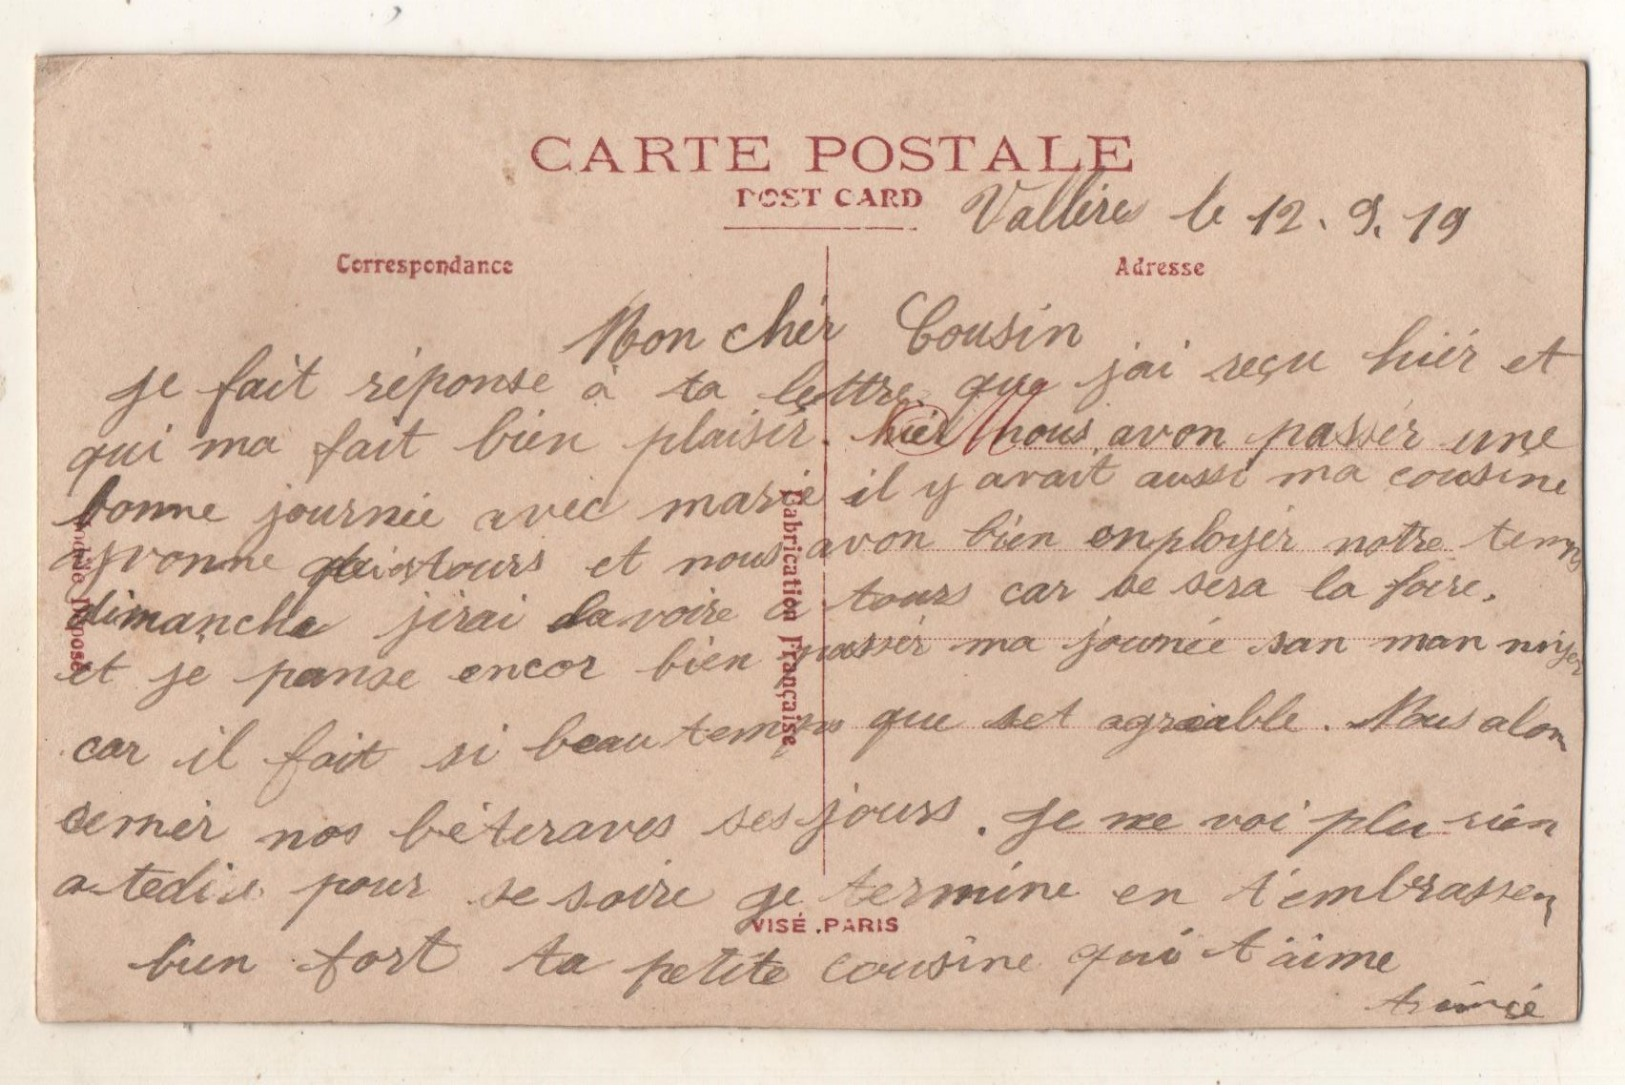 CARTE POSTALE
POST CARD
Vallères le 12. 9. 19
Correspondance
Adresse
Mon cher Cousin
je fait réponse à ta lettre que jai reçu hièr et
qui ma fait bien plaisir. hier nous avon passér une
bonne journée avec marie il y avait aussi ma cousine
yvonne et nous avon bien enployér notre temps
dimanche jirai la voire a tours car se sera la foire.
et je panse encor bien passér ma jounée san man
car il fait si beau temps que set agréable. Nous alon
cernér nos béteraves ses jours. Je ne voi plu rién
a tedire pour se soire je termine en t'embrassen
bien fort ta petite cousine qui t'aime
Modèle Déposé
Fabrication Française
VISÉ. PARIS